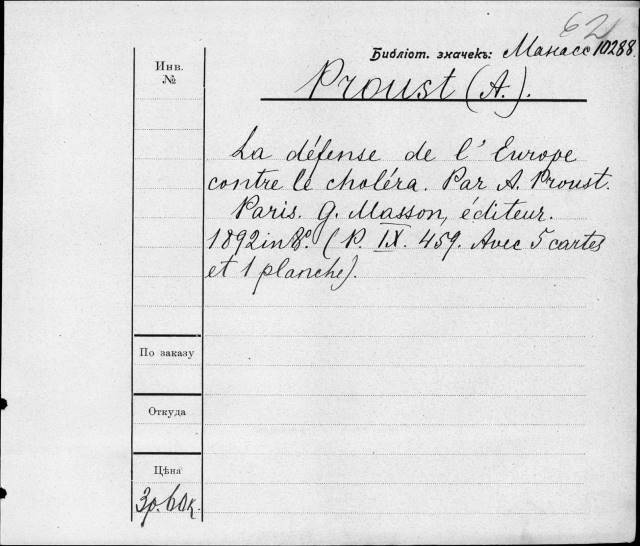 62
Библіот. значекъ: Манасс 10288.
Инв.
№
Proust (A.).
La défense de l'Europe
contre le choléra. Par A. Proust.
Paris. G. Masson, éditeur.
1892 in 8º. (P. IX. 459. Avec 5 cartes
et 1 planche).
По заказу
Откуда
Цѣна
3р. 60к.